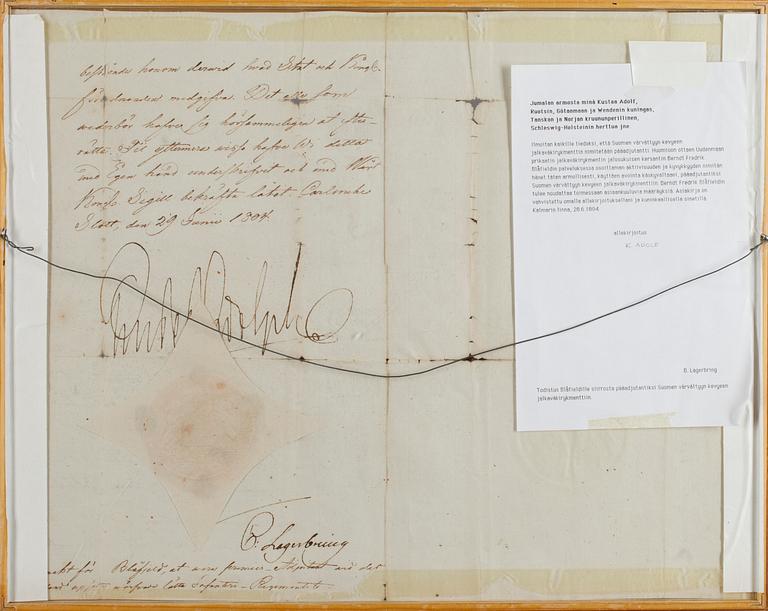 honom derwid hwad Stat och Kongl.
förordnanden medgifwa. Det alle som
wederbör hafwe sig hörsammeligen at efter-
rätta. Til yttermera wisso hafwe Wi detta
med Egen hand underskrifwit och med Wårt
Kongl. Sigill bekräfta låtit Carlsruhe
Slott, den 29 Junii 1804.
Gustaf Adolph
B: Lagerbring
för Blåfield, at wara premier-Adjutant wid det
lätta Infanterie-Regementet
Jumalan armosta minä Kustaa Adolf,
Ruotsin, Götanmaan ja Wendenin kuningas,
Tanskan ja Norjan kruununperillinen,
Schleswig-Holsteinin herttua jne
Ilmoitan kaikille tiedoksi, että Suomen värvättyyn kevyeen
jalkaväkirykmenttiin nimitetään pääadjutantti. Huomioon ottaen Uudenmaan
prikaatin jalkaväkirykmentin jalosukuisen kersantin Berndt Fredrik
Blåfieldin palveluksessa osoittaman aktiivisuuden ja kyvykkyyden nimitän
hänet täten armollisesti, käyttäen avointa käskyvaltaani, pääadjutantiksi
Suomen värvättyyn kevyeen jalkaväkirykmenttiin. Berndt Fredrik Blåfieldin
tulee noudattaa toimessaan asiaankuuluvia määräyksiä. Asiakirja on
vahvistettu omalla allekirjoituksellani ja kuninkaallisella sinetillä.
Kalmarin linna, 28.6.1804
allekirjoitus
K. ADOLF
B. Lagerbring
Todistus Blåfieldille siirrosta pääadjutantiksi Suomen värvättyyn kevyeen
jalkaväkirykmenttiin.